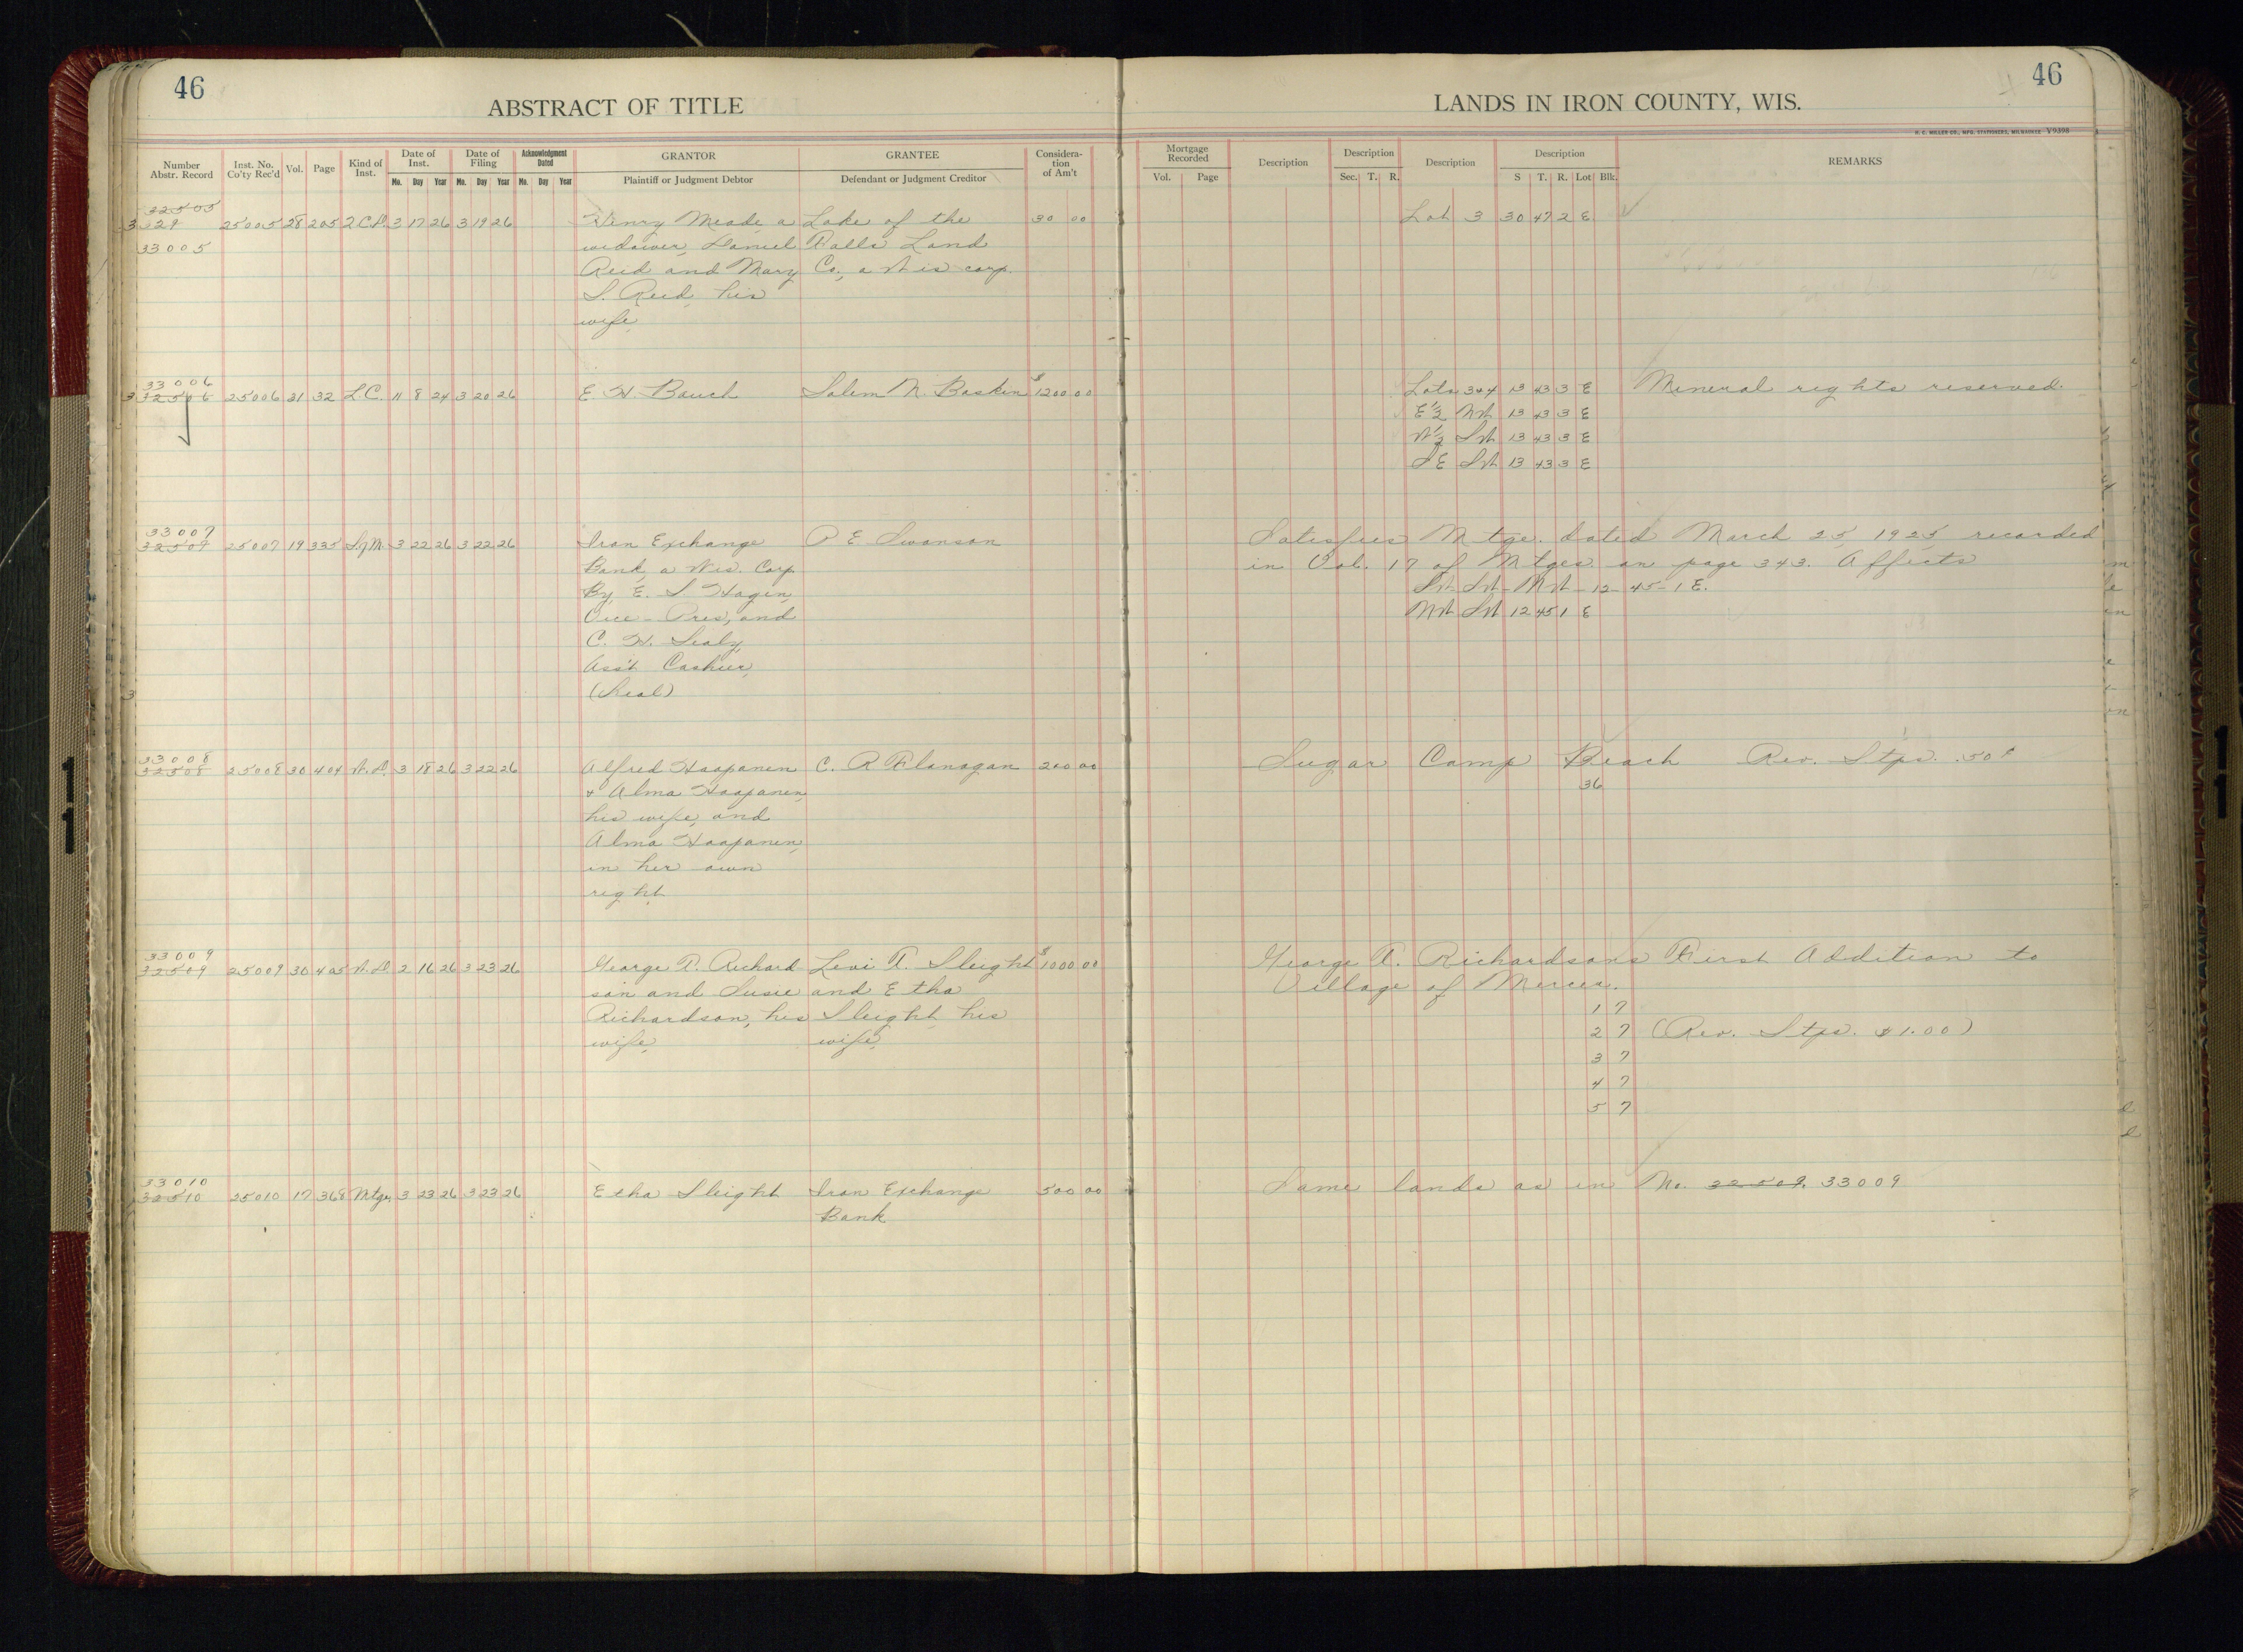 46
ABSTRACT OF TITLE
Number Abstr. Record
Inst. No. Co'ty Rec'd
Vol.
Page
Kind of Inst.
Date of Inst.
Mo. Day Year
Date of Filing
Mo. Day Year
Acknowledgment Dated
Mo. Day Year
GRANTOR
Plaintiff or Judgment Debtor
GRANTEE
Defendant or Judgment Creditor
Considera-
tion
of Am't
46
LANDS IN IRON COUNTY, WIS.
H. C. MILLER CO., MFG. STATIONERS, MILWAUKEE Y9398
Mortgage Recorded
Vol. Page
Description
Description
Sec. T. R.
Description
Description
S T. R. Lot Blk.
REMARKS
32505
3 329 25005 28 205 Q.C.D. 3 17 26 3 19 26 Henry Meade, a Lake of the 30 00 Lot 3 30 47 2 E
33005 widower, Daniel Falls Land
Reid and Mary Co., a Wis corp.
S. Reid, his
wife,
33006
3 32506 25006 21 32 L.C. 11 8 24 3 20 26 E. H. Bauch Salem N. Baskin $1200 00 Lots 3&4 13 43 3 E Mineral rights reserved.
E½ NW 13 43 3 E
W½ SW 13 43 3 E
SE SW 13 43 3 E
33007
32507 25007 19 335 S of M. 3 22 26 3 22 26 Iron Exchange P E Swanson Satisfies Mtge. dated March 25, 1925 recorded
Bank, a Wis. Corp. in Vol. 17 of Mtges. on page 343. Affects
By E. S Hagen, SW SW-NW-12-45-1 E.
Vice-Pres, and NW SW 12 45 1 E
C. H. Sealy,
Ass't Cashier,
(Seal)
3
33008
32508 25008 30 404 W.D. 3 18 26 3 22 26 Alfred Haapanen C. R Flanagan 200 00 Sugar Camp Beach Rev. Stps. .50¢
& Alma Haapanen, 36
his wife, and
Alma Haapanen,
in her own
right
33009
32509 25009 30 405 W.D. 2 16 26 3 23 26 George T. Richard- Levi T. Sleight $1000 00 George T. Richardsons First Addition to
son and Susie and Etha Village of Mercer.
Richardson, his Sleight, his 1 7
wife, wife, 2 7 (Rev. Stps. $1.00)
3 7
4 7
5 7
33010
32510 25010 17 368 Mtge. 3 23 26 3 23 26 Etha Sleight Iron Exchange 500 00 Same lands as in No. 32509. 33009
Bank